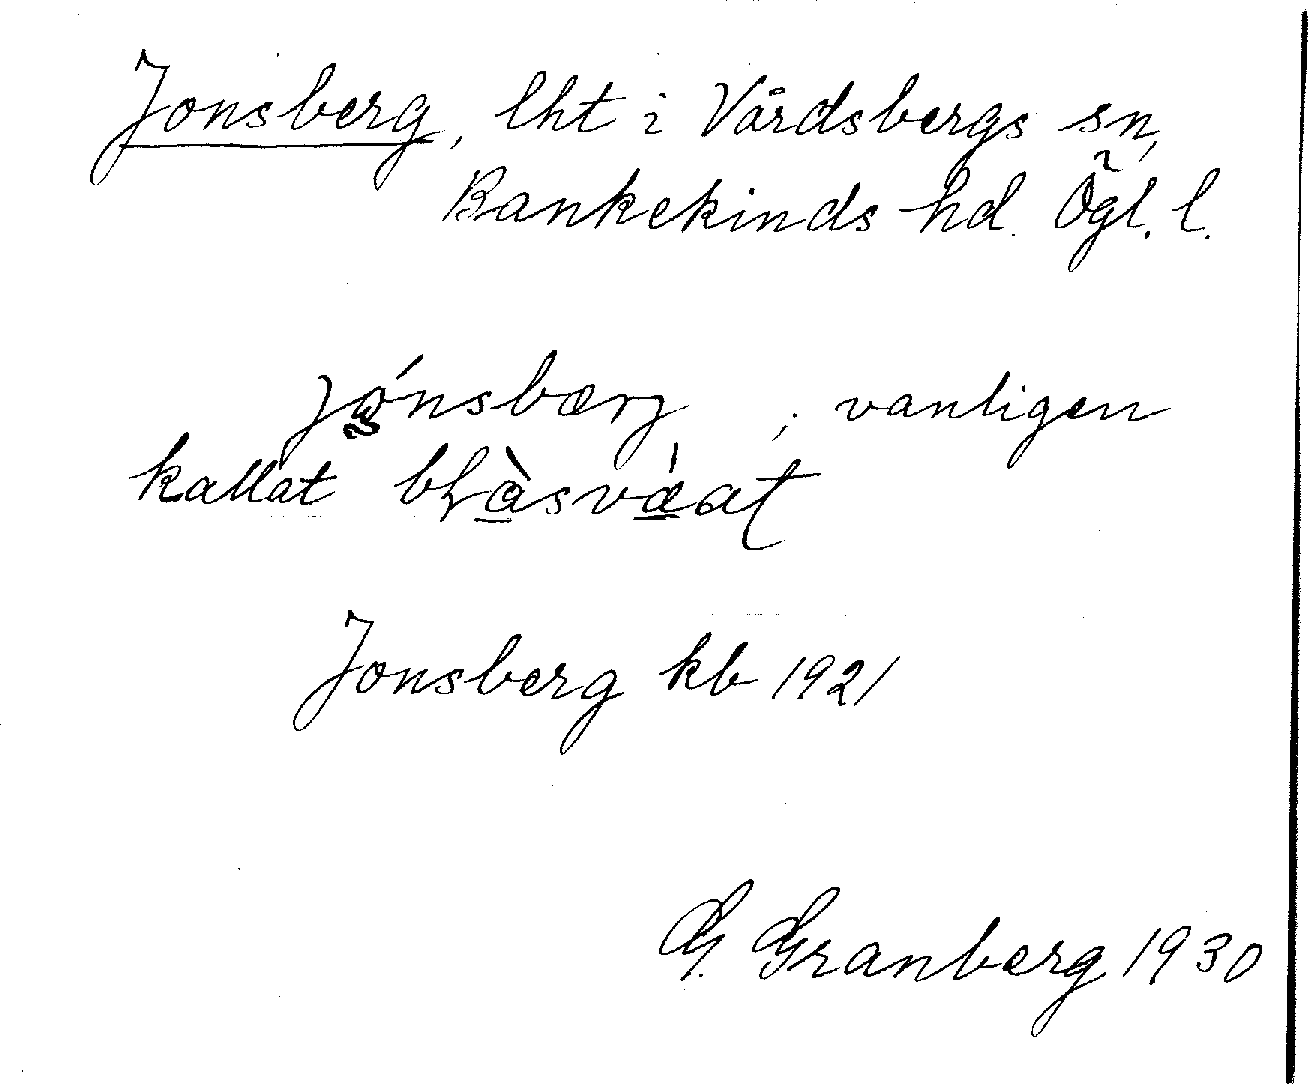 Jonsberg, lht i Vårdsbergs sn,
Bankekinds hd. Ögl. l.
jónsbærj ; vanligen
kallat bḷàsvàat
Jonsberg kb 1921
G. Granberg 1930